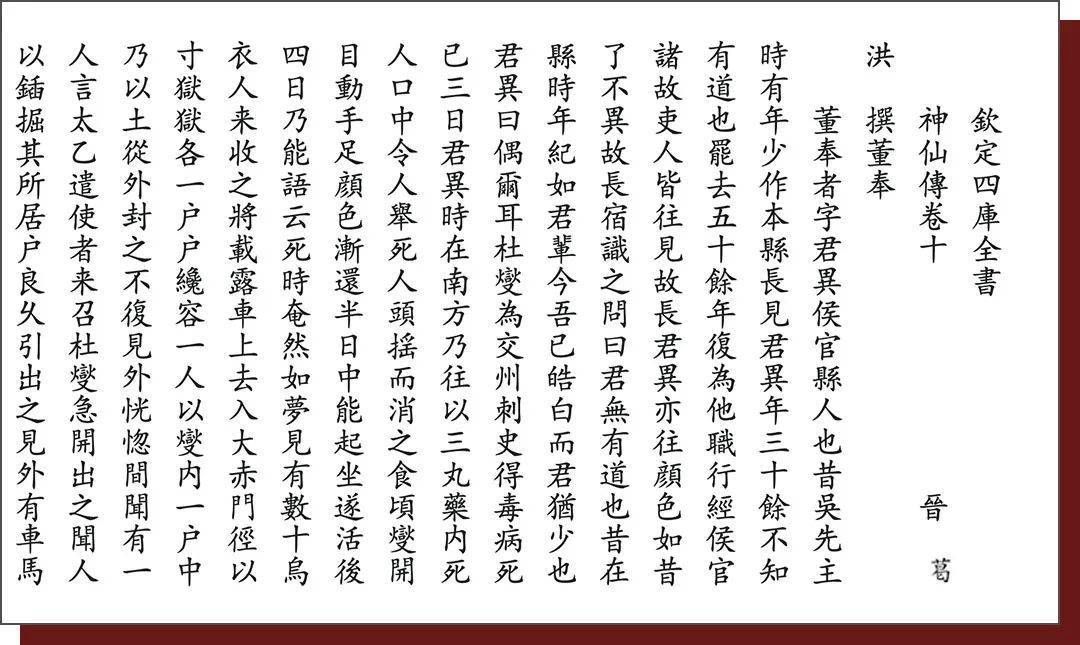 欽定四庫全書
神仙傳卷十 晉 葛
洪 撰董奉
董奉者字君異侯官縣人也昔吳先主
時有年少作本縣長見君異年三十餘不知
有道也罷去五十餘年復為他職行經侯官
諸故吏人皆往見故長君異亦往顔色如昔
了不異故長宿識之問曰君無有道也昔在
縣時年紀如君輩今吾已皓白而君猶少也
君異曰偶爾耳杜燮為交州刺史得毒病死
已三日君異時在南方乃往以三丸藥内死
人口中令人舉死人頭摇而消之食頃燮開
目動手足顔色漸還半日中能起坐遂活後
四日乃能語云死時奄然如夢見有數十烏
衣人来收之將載露車上去入大赤門徑以
寸獄獄各一户户纔容一人以燮内一户中
乃以土從外封之不復見外恍惚間聞有一
人言太乙遣使者来召杜燮急開出之聞人
以鍤掘其所居户良久引出之見外有車馬